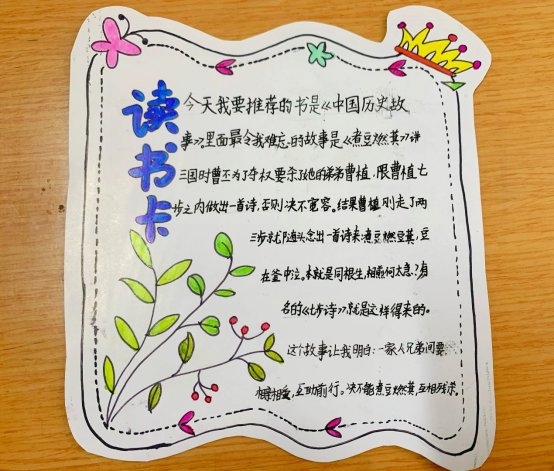 读书卡
今天我要推荐的书是《中国历史故
事》里面最令我难忘的故事是《煮豆燃萁》讲
三国时曹丕为了夺权要杀了他的弟弟曹植，限曹植七
步之内做出一首诗，否则决不宽容。结果曹植刚走了两
三步就随头念出一首诗来：煮豆燃豆萁，豆
在釜中泣。本就是同根生，相煎何太急？有
名的《七步诗》就是这样得来的。
这个故事让我明白：一家人兄弟间要
相亲相爱，互助前行。决不能煮豆燃萁，互相残杀。